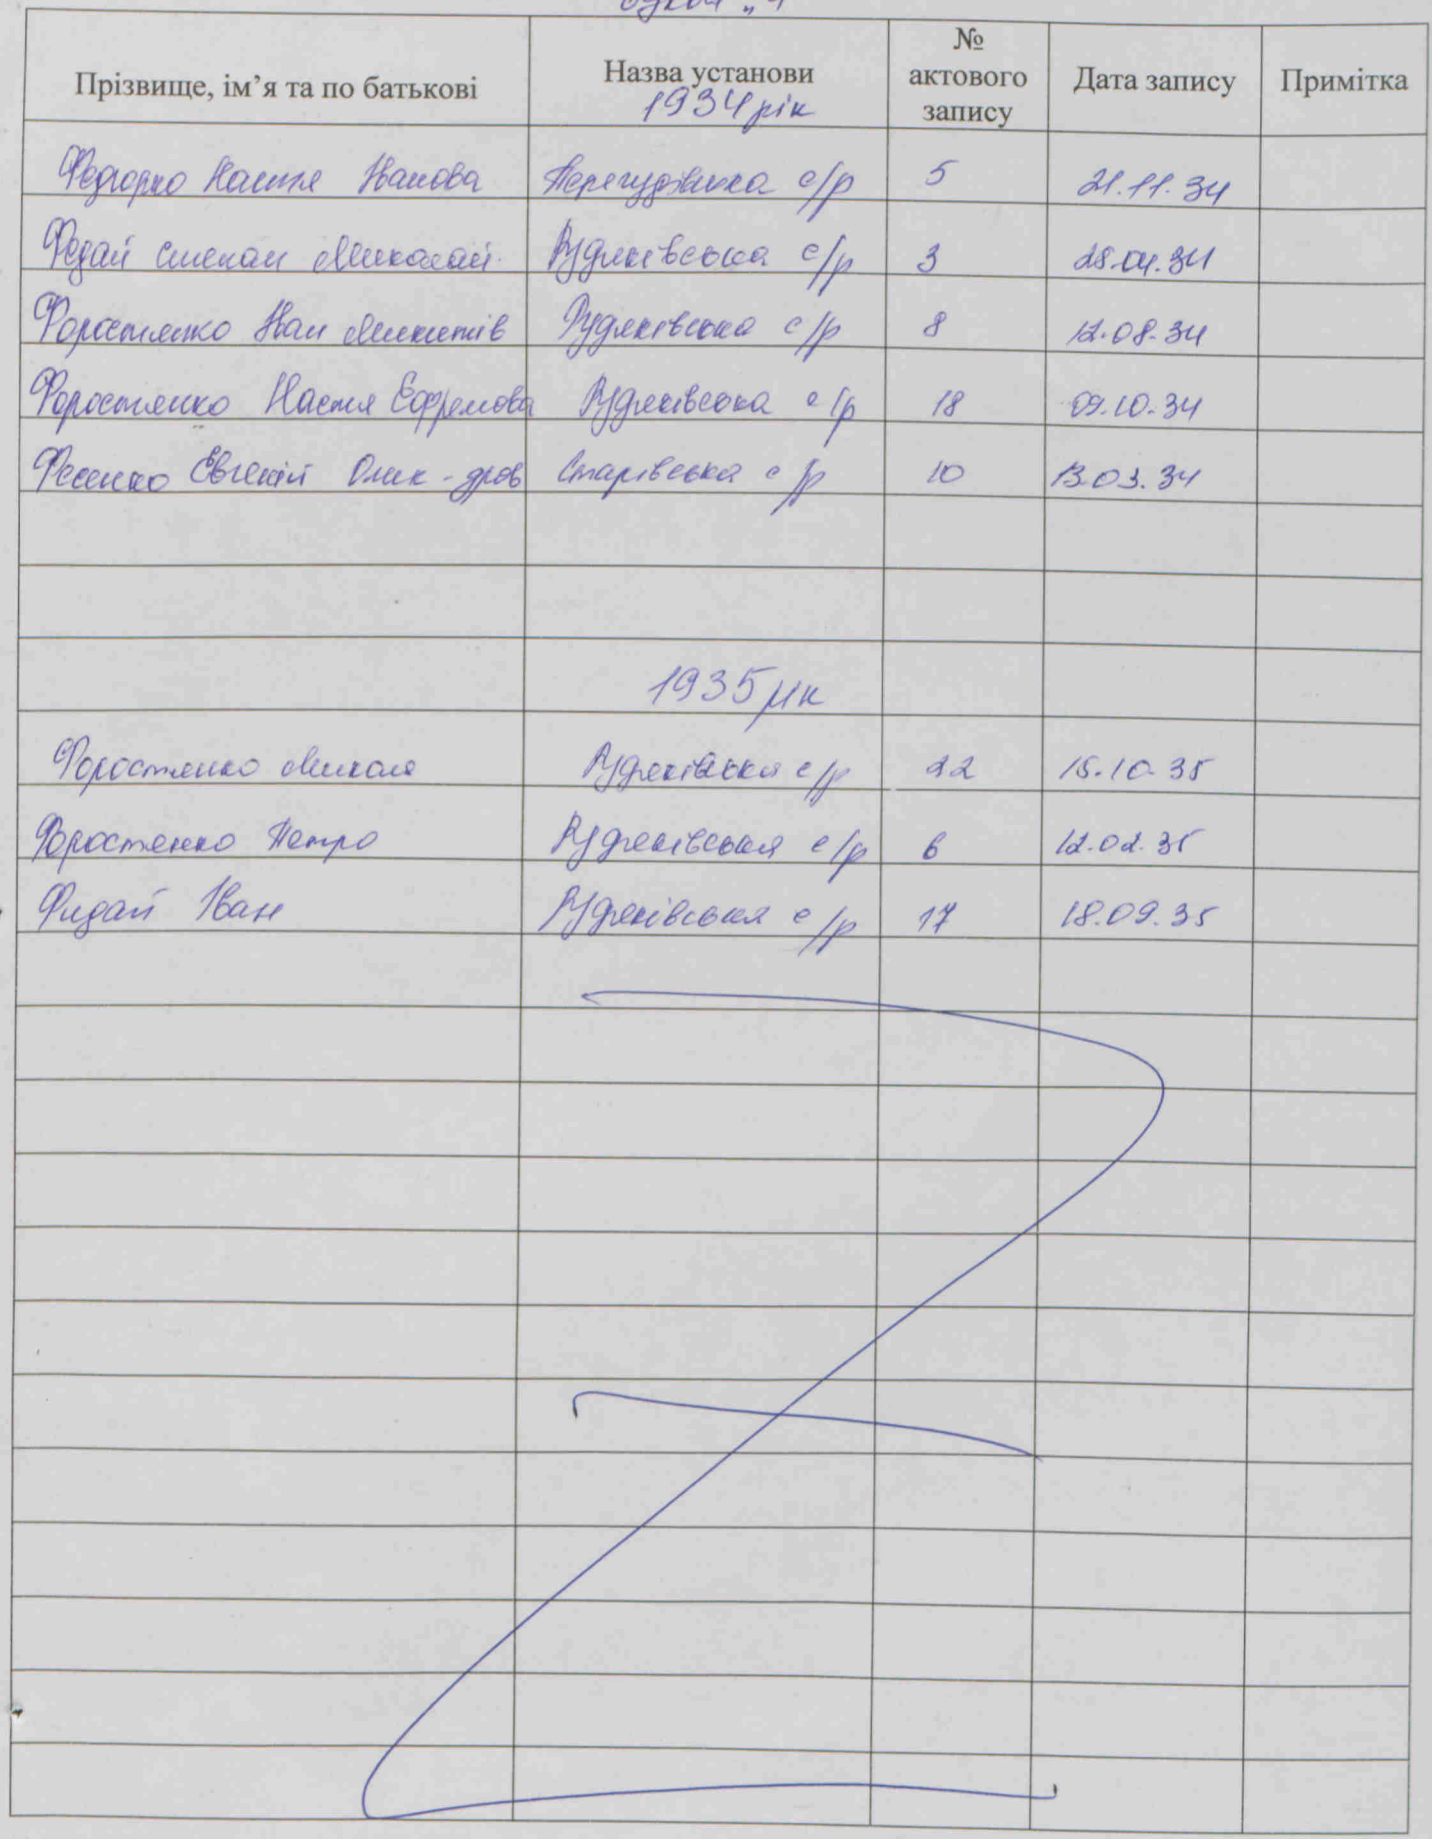 Прізвище, ім’я та по батькові Назва установи № актового запису Дата запису Примітка
1934 рік
Федорко Настя Іванова Перегудівська с/р 5 21.11.34
Федай Степан Миколай. Рудяківська с/р 3 28.04.34
Форостянко Іван Микитів Рудяківська с/р 8 12.08.34
Форостянко Настя Єфремова Рудяківська с/р 18 09.10.34
Фесенко Євгеній Олек-дров Старівська с/р 10 13.03.34
1935 рік
Форостянко Микола Рудяківська с/р 22 15.10.35
Форостенко Петро Рудяківська с/р 6 12.02.35
Фидай Іван Рудяківська с/р 17 18.09.35